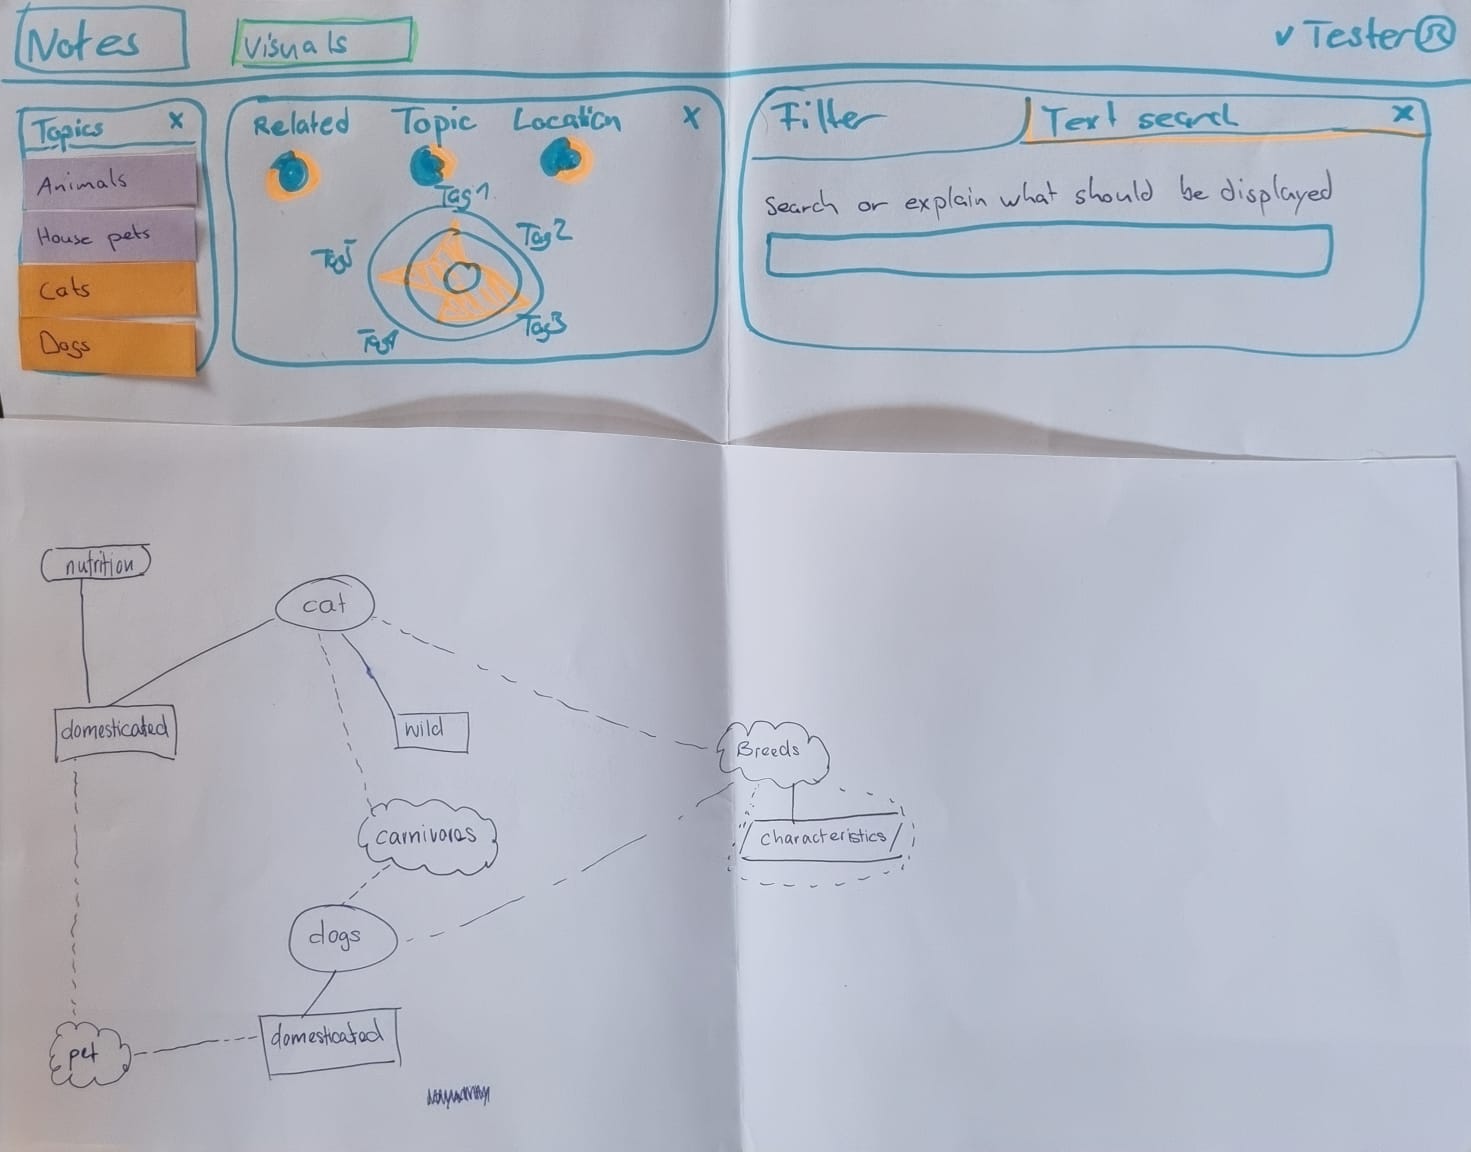 Notes
Visuals
v Tester®
Topics x
Animals
House pets
Cats
Dogs
Related Topic Location x
Tag1
Tag2
Tag3
Tag4
Tag5
Filter
Text search x
Search or explain what should be displayed
nutrition
cat
domesticated
wild
Breeds
characteristics
carnivores
dogs
pet
domesticated